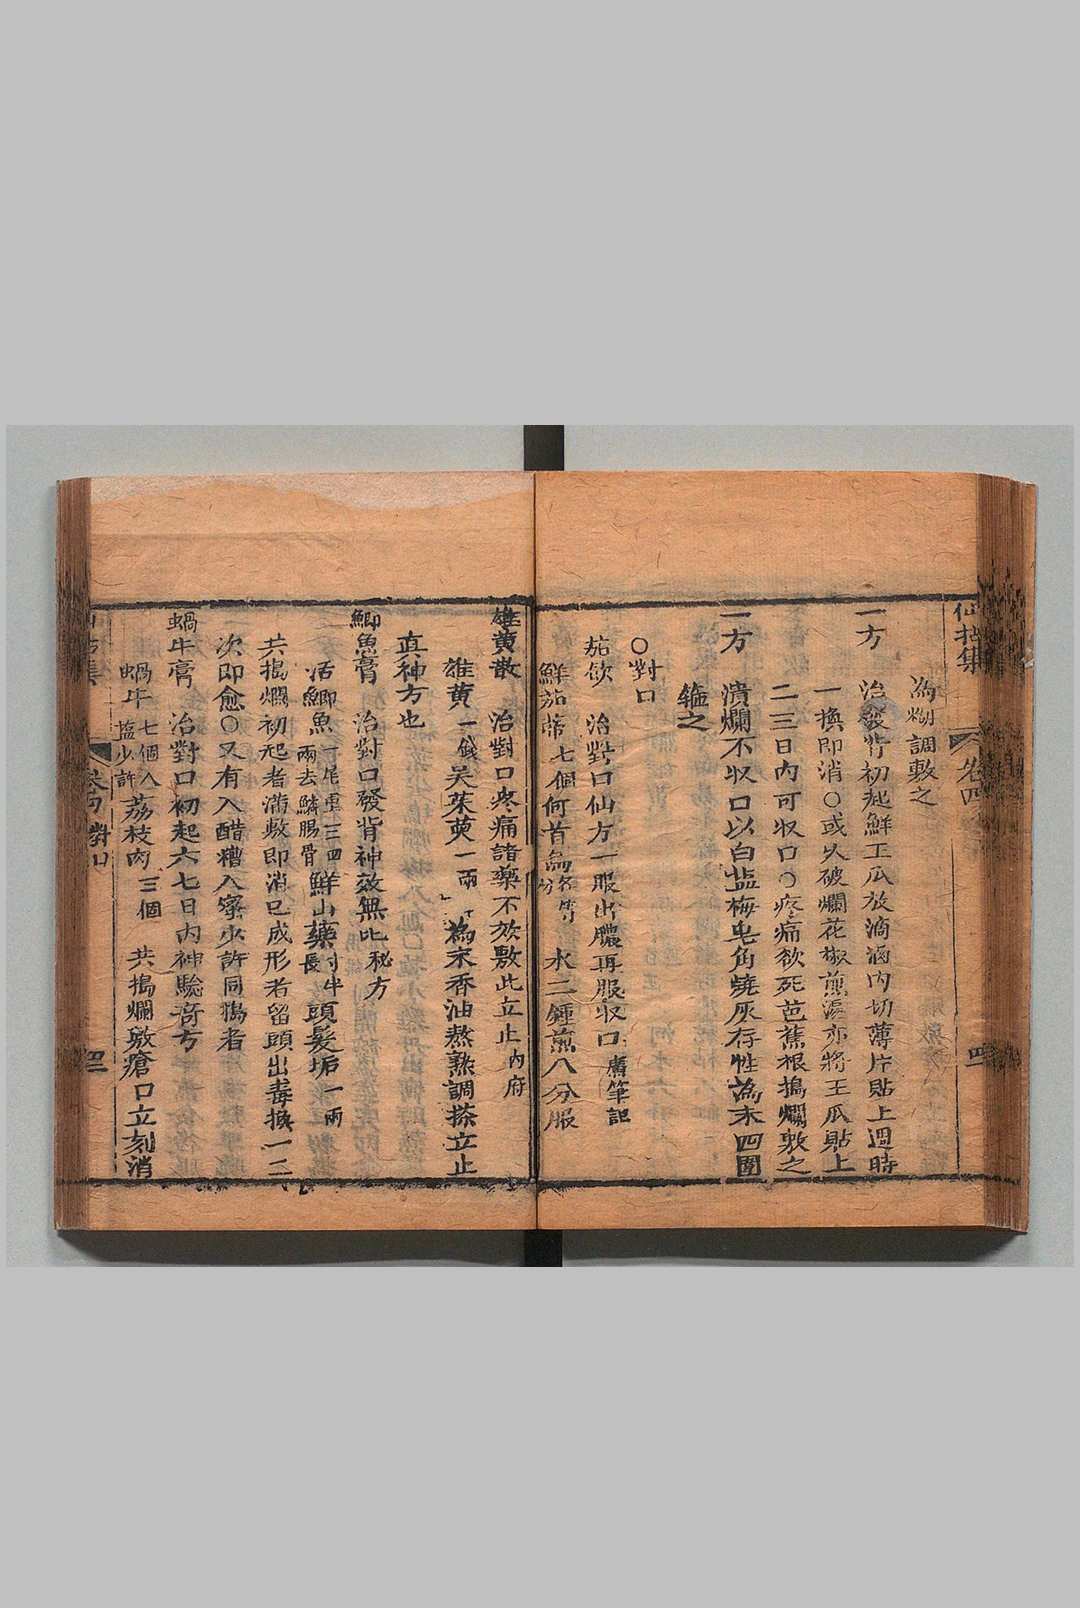 仙拈集 卷四 四一
為糊調敷之
一方 治發背初起鮮王瓜放滴滷內切薄片貼上週時
一換即消〇或久破爛花椒煎湯亦將王瓜貼上
二三日內可收口〇疼痛欲死芭蕉根搗爛敷之
一方 潰爛不收口以白盐梅皂角燒灰存性為末四圍
箍之
〇對口
茄飲 治對口仙方一服出膿再服收口 廣筆記
鮮茄蒂七個何首烏各等分 水二鍾煎八分服
雄黄散 治對口疼痛諸藥不效敷此立止 內府
雄黄一錢吴茱萸一兩 為末香油熬熟調搽立止
真神方也
鯽魚膏 治對口發背神效無比秘方
活鯽魚一尾重三四兩去鱗腸骨鮮山藥長半頭髮垢一兩
共搗爛初起者滿敷即消已成形者留頭出毒換一二
次即愈〇又有入醋糟入蜜少許同搗者
蝸牛膏 治對口初起六七日內神驗奇方
蝸牛七個入塩少許荔枝肉三個 共搗爛敷瘡口立刻消
卷四 對口 四二